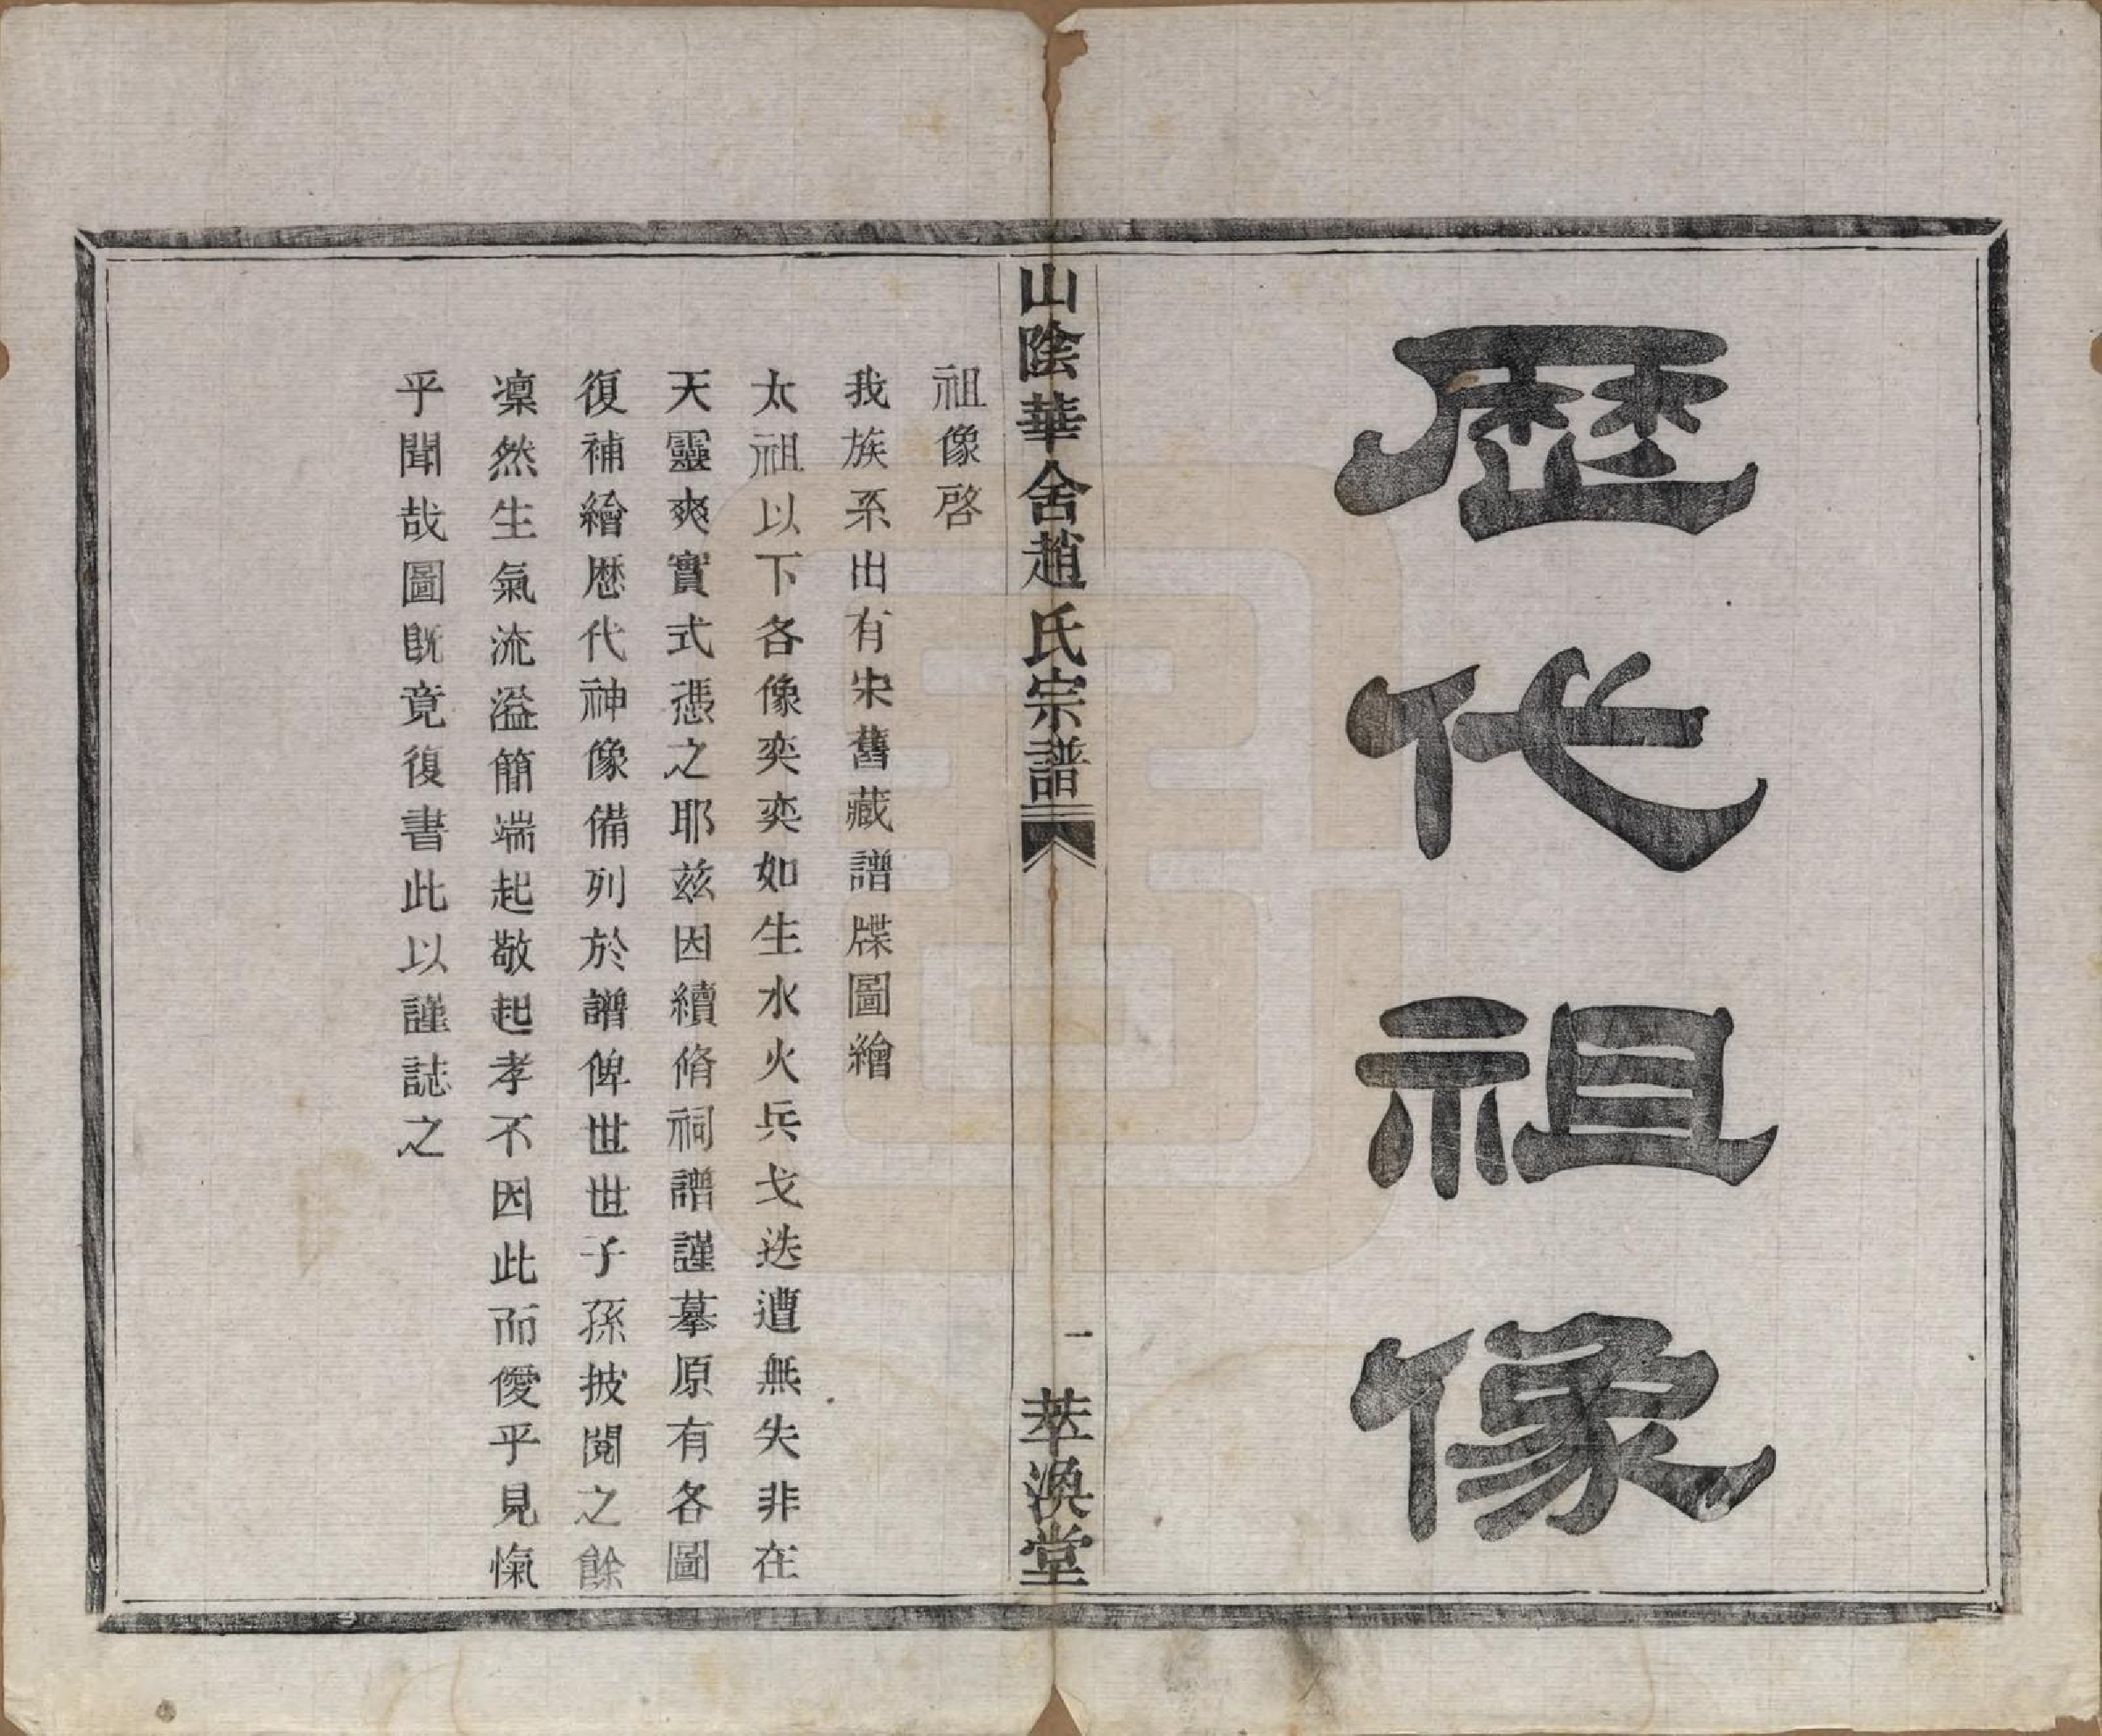 歷代祖像
山陰華舍趙氏宗譜
一
萃渙堂
祖像啓
我族系出有宋舊藏譜牒圖繪
太祖以下各像奕奕如生水火兵戈迭遭無失非在
天靈爽實式憑之耶兹因續脩祠譜謹摹原有各圖
復補繪歷代神像備列於譜俾世世子孫披閱之餘
凜然生氣流溢簡端起敬起孝不因此而僾乎見愾
乎聞哉圖既竟復書此以謹誌之